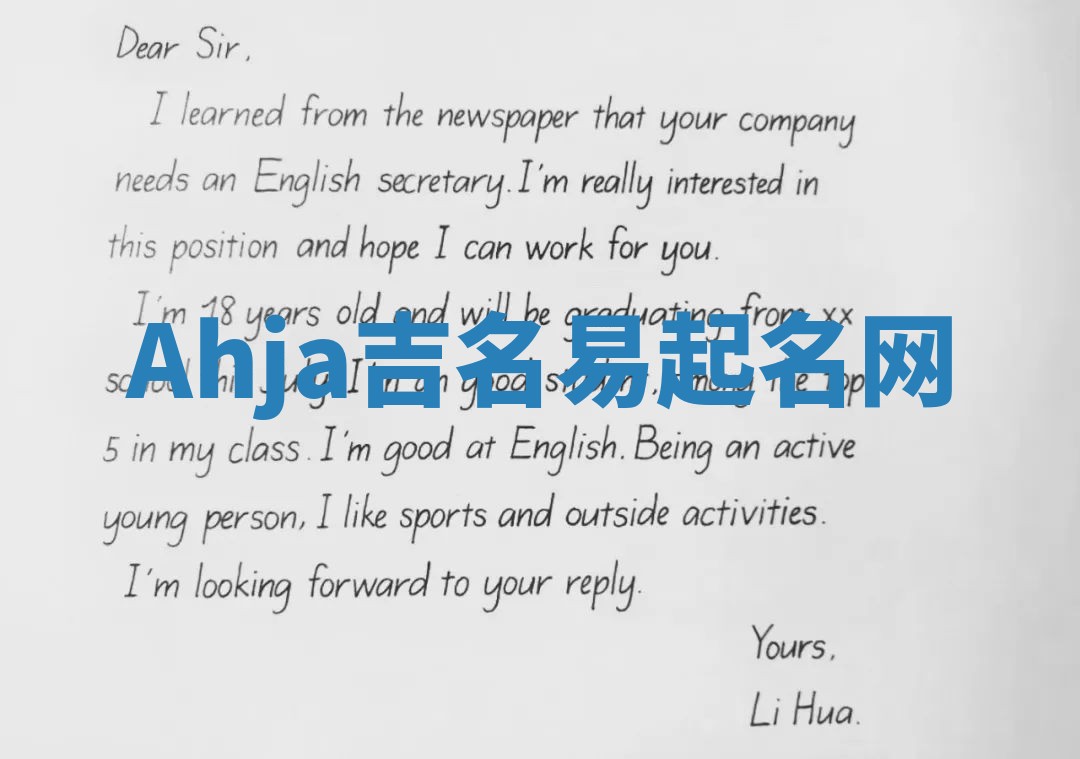 Dear Sir,
I learned from the newspaper that your company
needs an English secretary. I'm really interested in
this position and hope I can work for you.
I'm 18 years old and will be graduating from xx
Ahja吉名易起名网
school this July. I'm an good student, among the top
5 in my class. I'm good at English. Being an active
young person, I like sports and outside activities.
I'm looking forward to your reply.
Yours,
Li Hua.